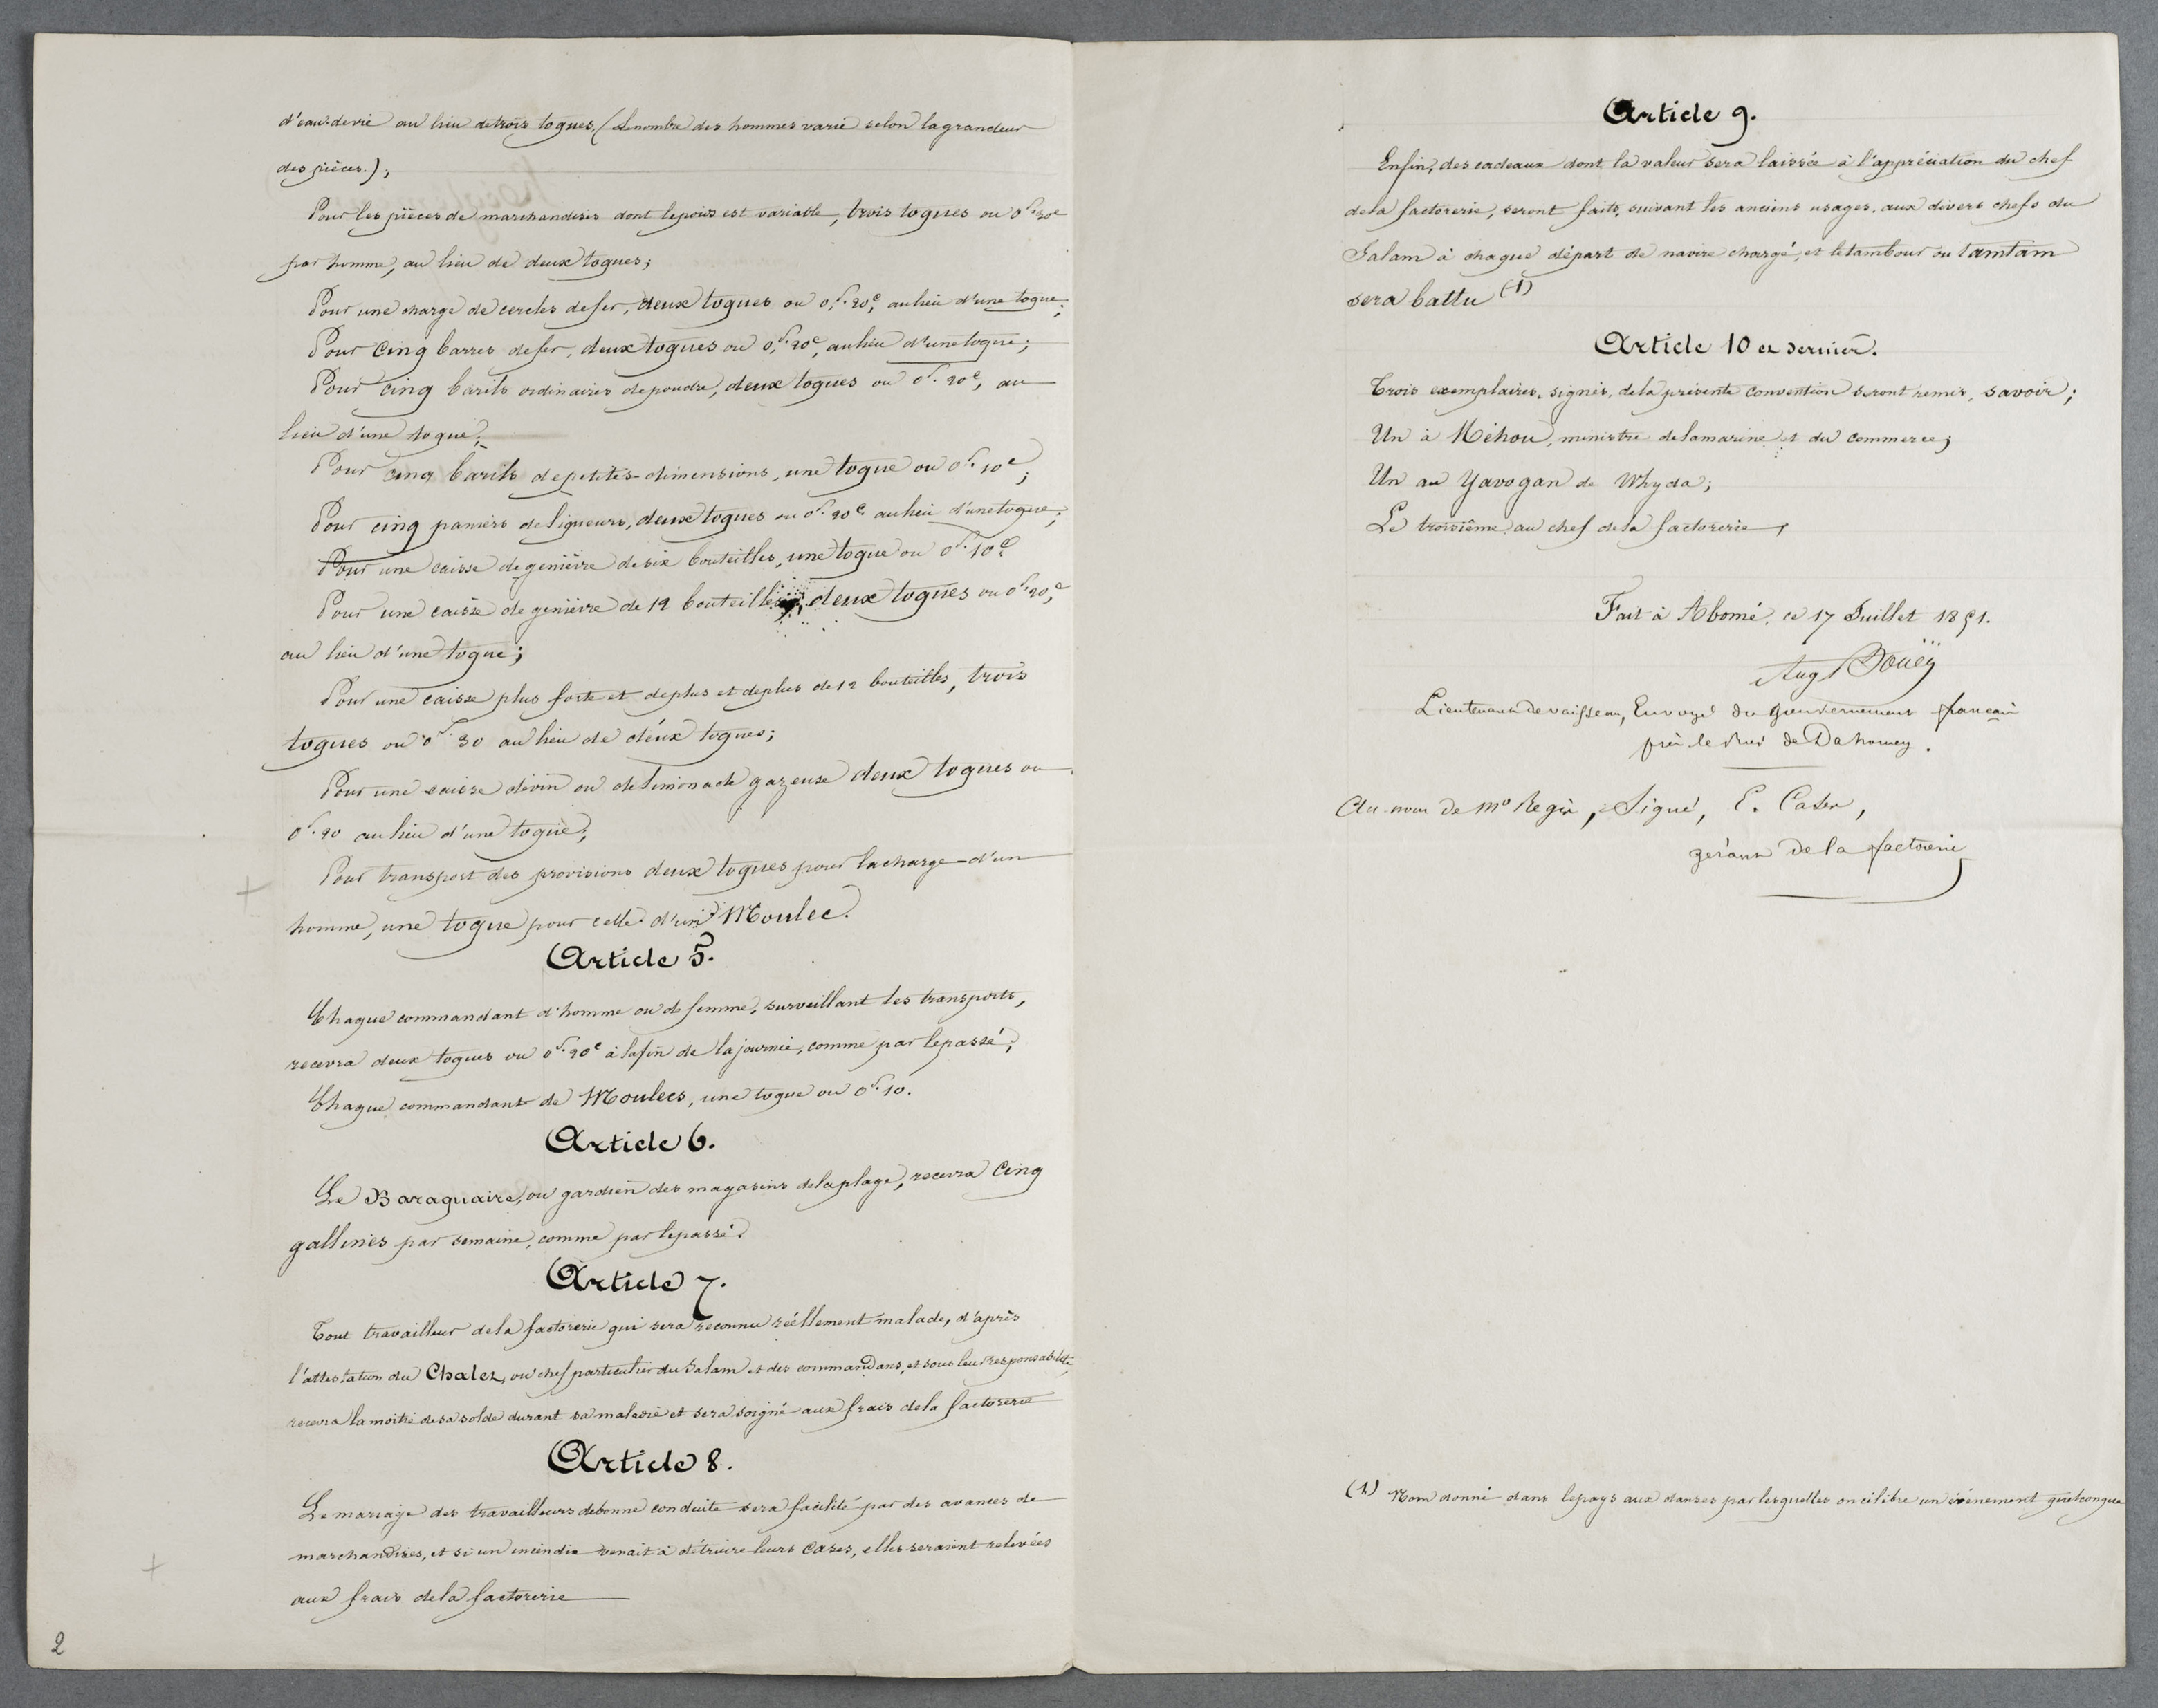 d'eau-de-vie au lieu de trois toques. (Le nombre des hommes varie selon la grandeur
des pièces.);
Pour les pièces de marchandises dont le poids est variable, trois toques ou 0f.30c
par homme, au lieu de deux toques;
Pour une charge de cercles de fer, deux toques ou 0f.20c, au lieu d'une toque;
Pour cinq barres de fer, deux toques ou 0f.20c, au lieu d'une toque;
Pour cinq barils ordinaires de poudre, deux toques ou 0f.20c, au
lieu d'une toque;
Pour cinq barils de petites dimensions, une toque ou 0f.10c;
Pour cinq paniers de liqueurs, deux toques ou 0f.20c au lieu d'une toque;
Pour une caisse de genièvre de six bouteilles, une toque ou 0f.10c
Pour une caisse de genièvre de 12 bouteilles, deux toques ou 0f.20c,
au lieu d'une toque;
Pour une caisse plus forte et de plus et de plus de 12 bouteilles, trois
toques ou 0f.30 au lieu de deux toques;
Pour une caisse de vin ou de limonade gazeuse deux toques ou
0f.20 au lieu d'une toque;
Pour transport des provisions deux toques pour la charge d'un
homme, une toque pour celle d'un Moulec.
Article 5.
Chaque commandant d'homme ou de femme, surveillant les transports,
recevra deux toques ou 0f.20c à la fin de la journée, comme par le passé;
Chaque commandant de Moulecs, une toque ou 0f.10.
Article 6.
Le Baraguaire, ou gardien des magasins de la plage, recevra Cinq
gallines par semaine, comme par le passé.
Article 7.
Tout travailleur de la factorerie qui sera reconnu réellement malade, d'après
l'attestation du Chalez, ou chef particulier du Salam et des commandans, et sous leur responsabilité,
recevra la moitié de sa solde durant sa maladie et sera soigné aux frais de la factorerie
Article 8.
Le mariage des travailleurs de bonne conduite sera facilité par des avances de
marchandises, et si un incendie venait à détruire leurs Cases, elles seraient relevées
aux frais de la factorerie
2
Article 9.
Enfin, des cadeaux dont la valeur sera laissée à l'appréciation du chef
de la factorerie, seront faits, suivant les anciens usages, aux divers chefs du
Salam à chaque départ de navire chargé, et le tambour ou tamtam
sera battu (1)
Article 10 et dernier.
Trois exemplaires, signés, de la présente convention seront remis, savoir;
Un à Méhou, ministre de la marine et du commerce;
Un au Yavogan de Whyda;
Le troisième au chef de la factorerie,
Fait à Abomé, ce 17 Juillet 1851.
Aug Boüey
Lieutenant de vaisseau, Envoyé du Gouvernement français
près le Roi de Dahomey.
Au nom de Mr Regis, Signé, E. Case,
gérant de la factorerie
(1) Nom donné dans le pays aux danses par lesquelles on célèbre un événement quelconque